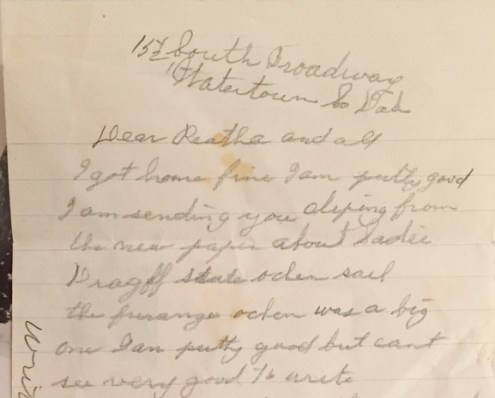 157 South Broadway
Watertown So Dak
Dear Reatha and alf
I got home fine I am putty good
I am sending you cliping from
the new paper about Sadie
state ochen sail
the ochen was a big
one I am putty good but cant
see very good to write
Wri